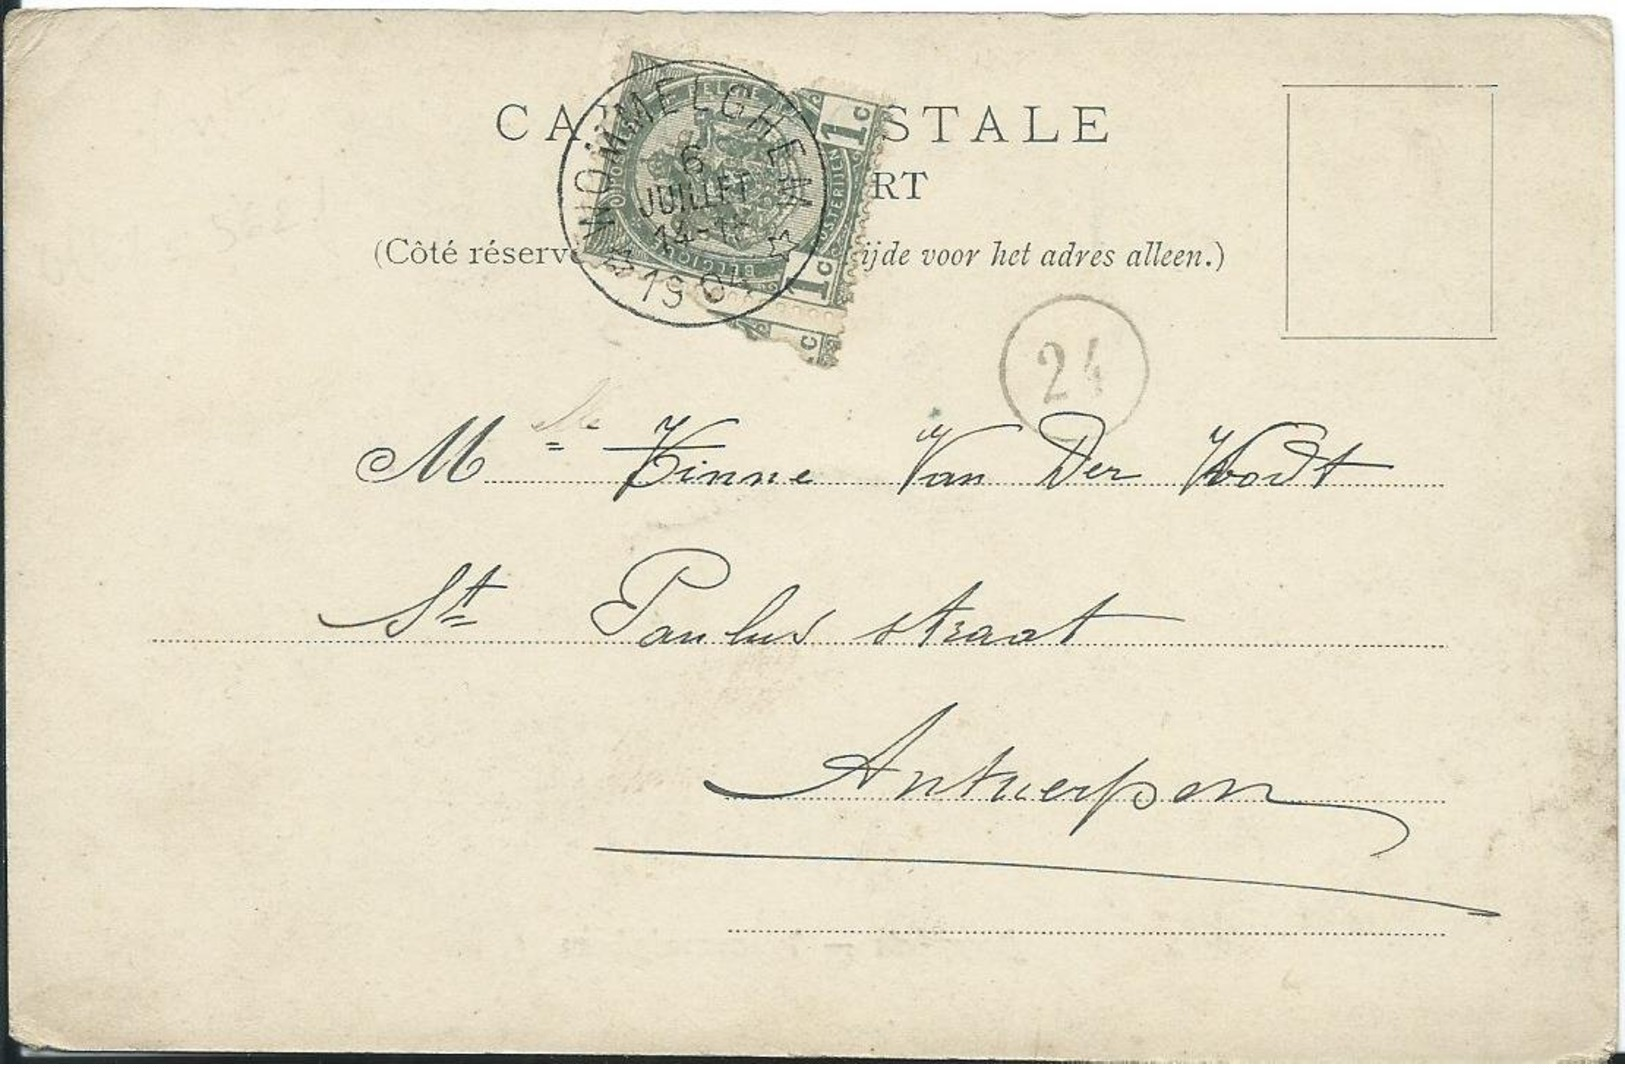 CA STALE
RT
(Côté réserv ijde voor het adres alleen.)
WOMMELGHEM
6
JUILLET
1904
BELGIQUE
1c
1c
24
Mlle Kinne Van Der Voodt
St Paulus straat
Antwerpen